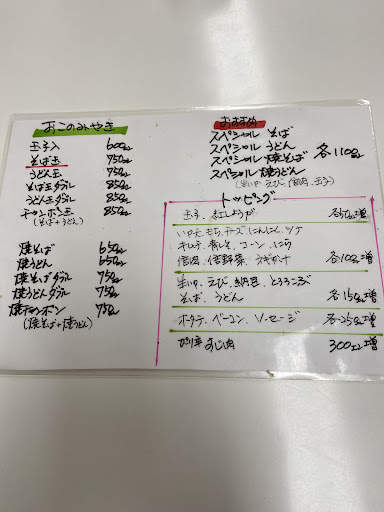 おこのみやき
玉子入 600エン
そば玉 750エン
うどん玉 750エン
そば玉ダブル 850エン
うどん玉ダブル 850エン
チャンポン玉 850エン
(そば+うどん)
焼そば 650エン
焼うどん 650エン
焼そばダブル 750エン
焼うどんダブル 750エン
焼チャンポン 750エン
(焼そば+焼うどん)
おすすめ
スペシャル そば
スペシャル うどん
スペシャル 焼そば 各1100エン
スペシャル 焼うどん
(生いか、えび、肉、玉子)
トッピング
玉子、紅しょうが 各50エン増
もち、チーズ、にんにく、ツナ
キムチ、青じそ、コーン、にら
各100エン増
生いか、えび、納豆、とろろこんぶ
そば、うどん 各150エン増
ホタテ、ベーコン、ソーセージ 各250エン増
ぴり辛すじ肉 300エン増